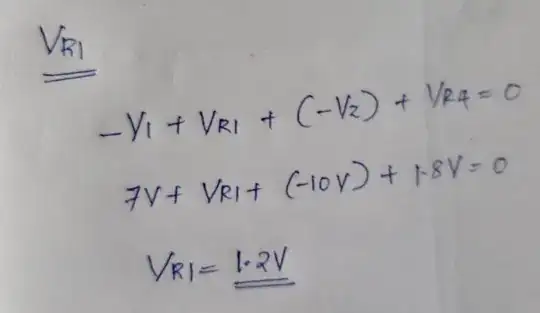 VR1
-V1 + VR1 + (-V2) + VR4 = 0
7V + VR1 + (-10V) + 1.8V = 0
VR1 = 1.2V